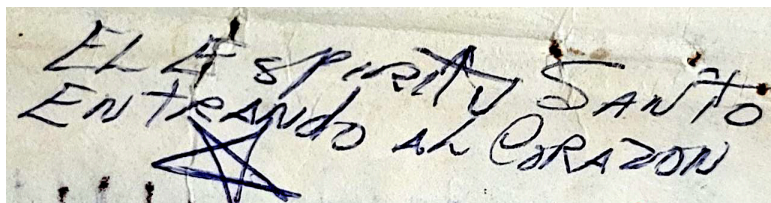 EL Espiritu Santo
Entrando al Corazon